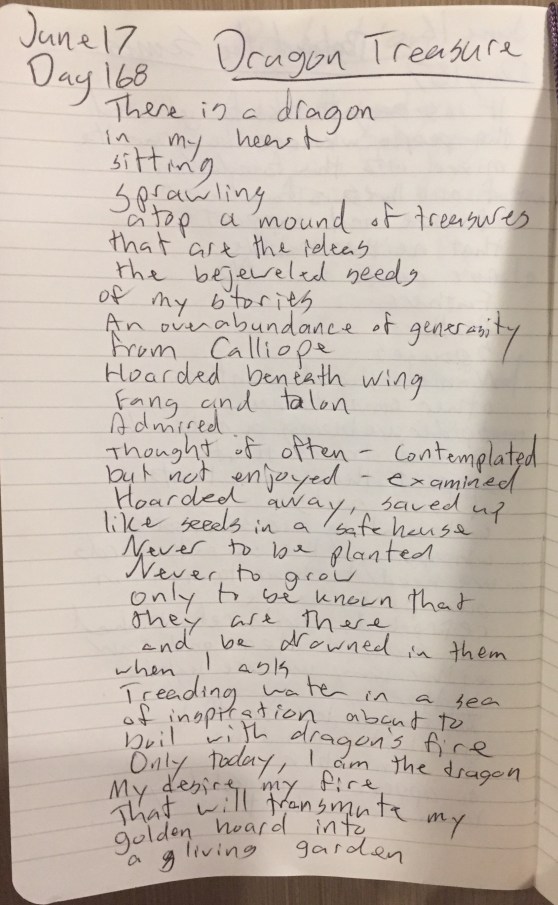 June 17
Day 168
Dragon Treasure
There is a dragon
in my heart
sitting
sprawling
atop a mound of treasures
that are the ideas
the bejeweled seeds
of my stories
An overabundance of generosity
from Calliope
Hoarded beneath wing
Fang and talon
Admired
Thought of often - contemplated
but not enjoyed - examined
Hoarded away, saved up
like seeds in a safe house
Never to be planted
Never to grow
only to be known that
they are there
and be drowned in them
when I ask
Treading water in a sea
of inspiration about to
boil with dragon's fire
Only today, I am the dragon
My desire, my fire
That will transmute my
golden hoard into
a living garden